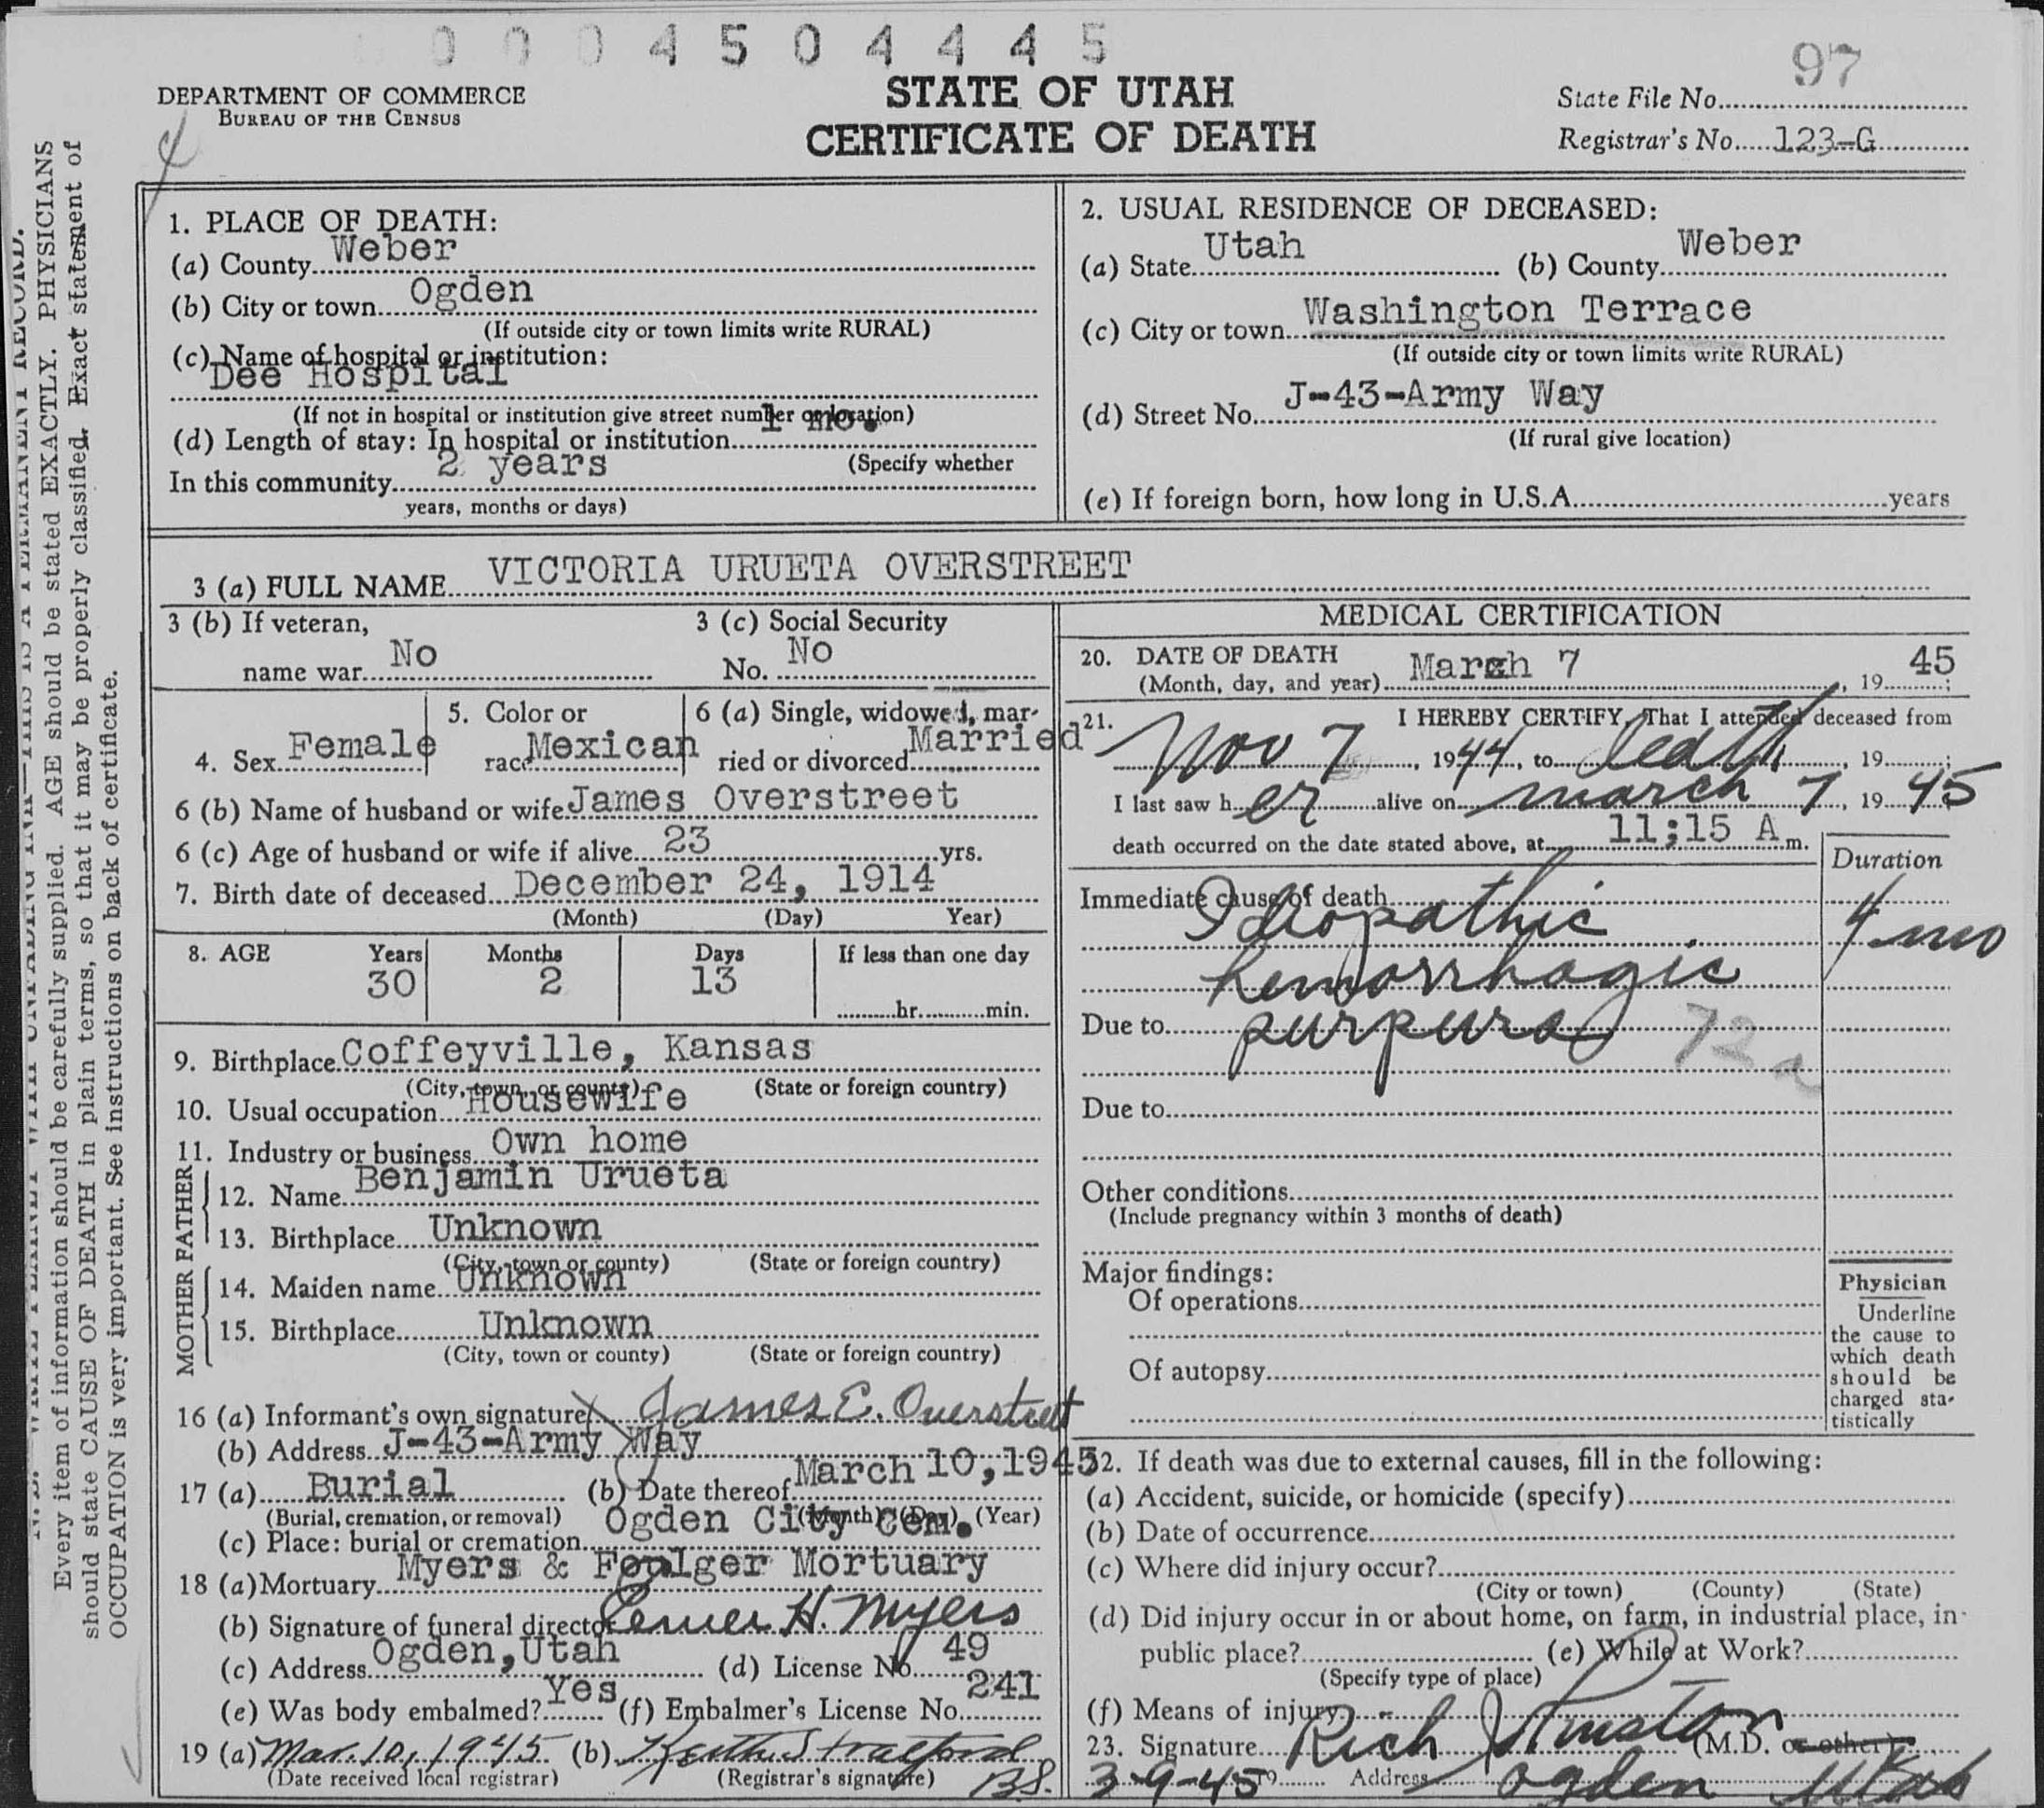 0 0 0 4 5 0 4 4 4 5
97
DEPARTMENT OF COMMERCE
BUREAU OF THE CENSUS
4
STATE OF UTAH
CERTIFICATE OF DEATH
State File No.
Registrar's No. 123-G
Every item of information should be carefully supplied. AGE should be stated EXACTLY. PHYSICIANS
should state CAUSE OF DEATH in plain terms, so that it may be properly classified. Exact statement of
OCCUPATION is very important. See instructions on back of certificate.
1. PLACE OF DEATH:
(a) County Weber
(b) City or town Ogden
(If outside city or town limits write RURAL)
(c) Name of hospital or institution:
Dee Hospital
(If not in hospital or institution give street number or location)
(d) Length of stay: In hospital or institution 1 mo.
(Specify whether
In this community 2 years
years, months or days)
2. USUAL RESIDENCE OF DECEASED:
(a) State Utah (b) County Weber
(c) City or town Washington Terrace
(If outside city or town limits write RURAL)
(d) Street No. J-43-Army Way
(If rural give location)
(e) If foreign born, how long in U.S.A. years
3 (a) FULL NAME VICTORIA URUETA OVERSTREET
3 (b) If veteran,
name war No
3 (c) Social Security
No. No
4. Sex Female
5. Color or
race Mexican
6 (a) Single, widowed, mar-
ried or divorced Married
6 (b) Name of husband or wife James Overstreet
6 (c) Age of husband or wife if alive 23 yrs.
7. Birth date of deceased December 24, 1914
(Month) (Day) Year)
8. AGE Years Months Days If less than one day
30 2 13
hr. min.
9. Birthplace Coffeyville, Kansas
(City, town, or county) (State or foreign country)
10. Usual occupation Housewife
11. Industry or business Own home
FATHER
12. Name Benjamin Urueta
13. Birthplace Unknown
(City, town or county) (State or foreign country)
MOTHER
14. Maiden name Unknown
15. Birthplace Unknown
(City, town or county) (State or foreign country)
16 (a) Informant's own signature James E. Overstreet
(b) Address J-43-Army Way
17 (a) Burial (b) Date thereof March 10, 1945
(Burial, cremation, or removal) (Month) (Day) (Year)
(c) Place: burial or cremation Ogden City Cem.
18 (a) Mortuary Myers & Foulger Mortuary
(b) Signature of funeral director H. Myers
(c) Address Ogden, Utah (d) License No. 49
(e) Was body embalmed? Yes (f) Embalmer's License No. 241
19 (a) Mar. 10, 1945 (b) Keith Stratford
(Date received local registrar) (Registrar's signature) B.S.
MEDICAL CERTIFICATION
20. DATE OF DEATH
(Month, day, and year) March 7, 1945;
21. I HEREBY CERTIFY, That I attended deceased from
Nov 7, 1944, to death, 19 ;
I last saw her alive on march 7, 1945
death occurred on the date stated above, at 11;15 A m.
Duration
Immediate cause of death
Idiopathic 4 mo
hemorrhagic
Due to purpura 72a
Due to
Other conditions
(Include pregnancy within 3 months of death)
Major findings:
Of operations
Of autopsy
Physician
Underline
the cause to
which death
should be
charged sta-
tistically
22. If death was due to external causes, fill in the following:
(a) Accident, suicide, or homicide (specify)
(b) Date of occurrence
(c) Where did injury occur?
(City or town) (County) (State)
(d) Did injury occur in or about home, on farm, in industrial place, in
public place? (e) While at Work?
(Specify type of place)
(f) Means of injury
23. Signature Rich Johnston (M.D. or other)
3-9-45 19 Address Ogden Utah